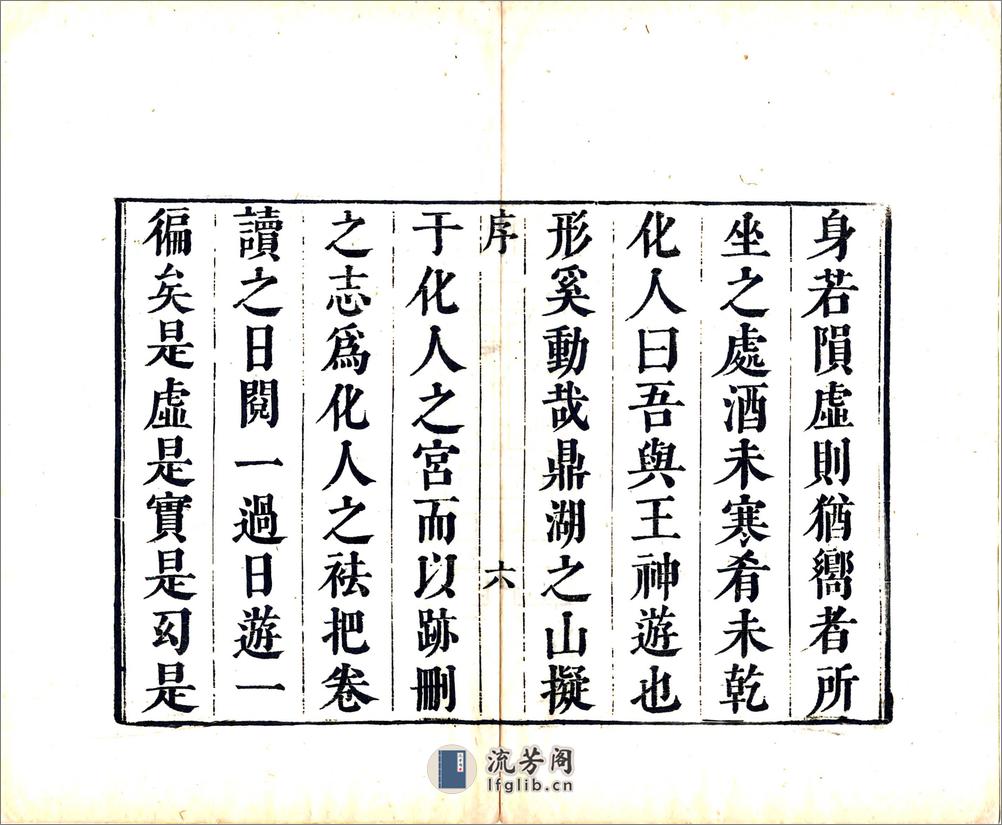 身若隕虛則猶嚮者所
坐之處酒未寒肴未乾
化人曰吾與王神遊也
形奚動哉鼎湖之山擬
序 六
于化人之宮而以跡刪
之志為化人之袪把卷
讀之日閱一過日遊一
徧矣是虛是實是幻是
流芳阁
lfglib.cn